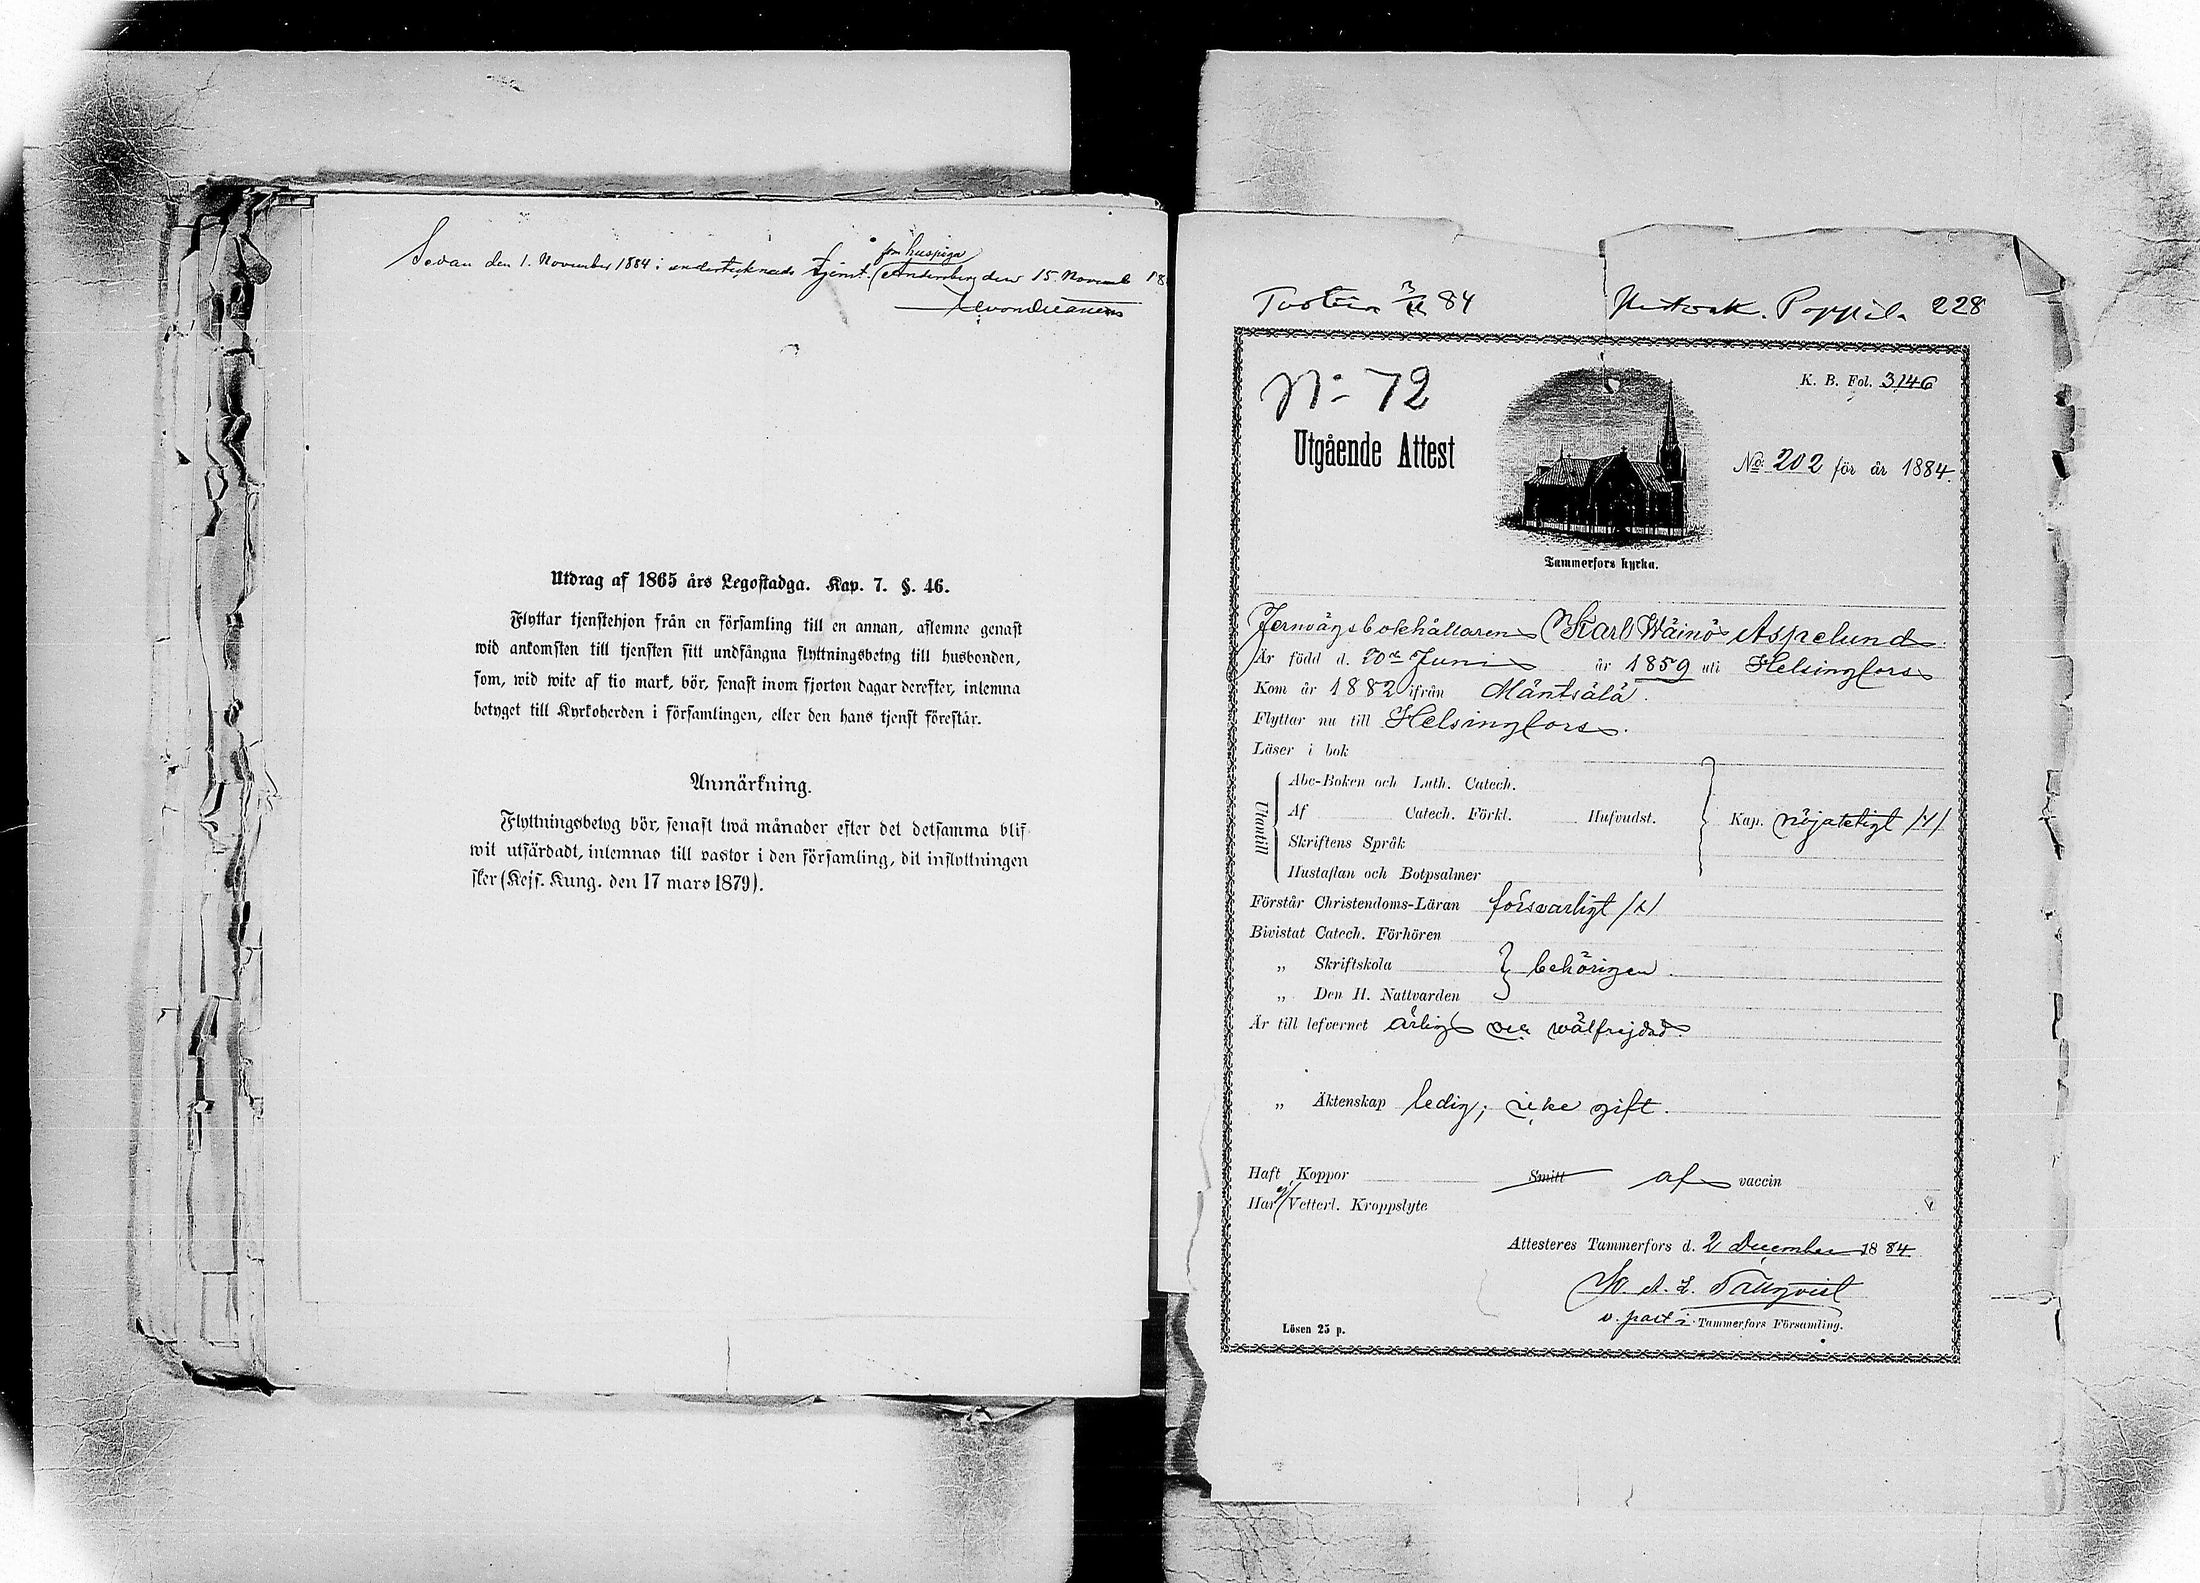 som huspiga
Sedan den 1. November 1884 i undertecknads tjenst. Anderberg den 15. Novemb 18
Utdrag af 1865 års Legostadga. Kap. 7. §. 46.
Flyttar tjenstehjon från en församling till en annan, aflemne genast
wid ankomsten till tjensten sitt undfångna flyttningsbetyg till husbonden,
som, wid wite af tio mark, bör, senast inom fjorton dagar derefter, inlemna
betyget till Kyrkoherden i församlingen, eller den hans tjenst förestår.
Anmärkning.
Flyttningsbetyg bör, senast twå månader efter det detsamma blif-
wit utfärdadt, inlemnas till pastor i den församling, dit inflyttningen
sker (Kejs. Kung. den 17 mars 1879).
84 228
N: 72
K. B. Fol. 3146
Utgående Attest
No: 202 för år 1884.
Tammerfors kyrka.
Jernvägsbokhållaren Karl Wäinö Aspelund
Är född d. 20de Juni år 1859 uti Helsingfors
Kom år 1882 ifrån Mäntsälä.
Flyttar nu till Helsingfors.
Läser i bok
Utantill
Abc-Boken och Luth. Catech.
Af Catech. Förkl. Hufvudst. Kap. nöjaktigt /1/
Skriftens Språk
Hustaflan och Botpsalmer
Förstår Christendoms-Läran försvarligt /1/
Bivistat Catech. Förhören
„ Skriftskola behörigen
„ Den H. Nattvarden
Är till lefvernet ärlig och wälfrejdad
„ Äktenskap ledig; icke gift.
Haft Koppor Smitt af vaccin
Har ej Vetterl. Kroppslyte
Attesteres Tammerfors d. 2 December 1884
v. past i Tammerfors Församling.
Lösen 25 p.